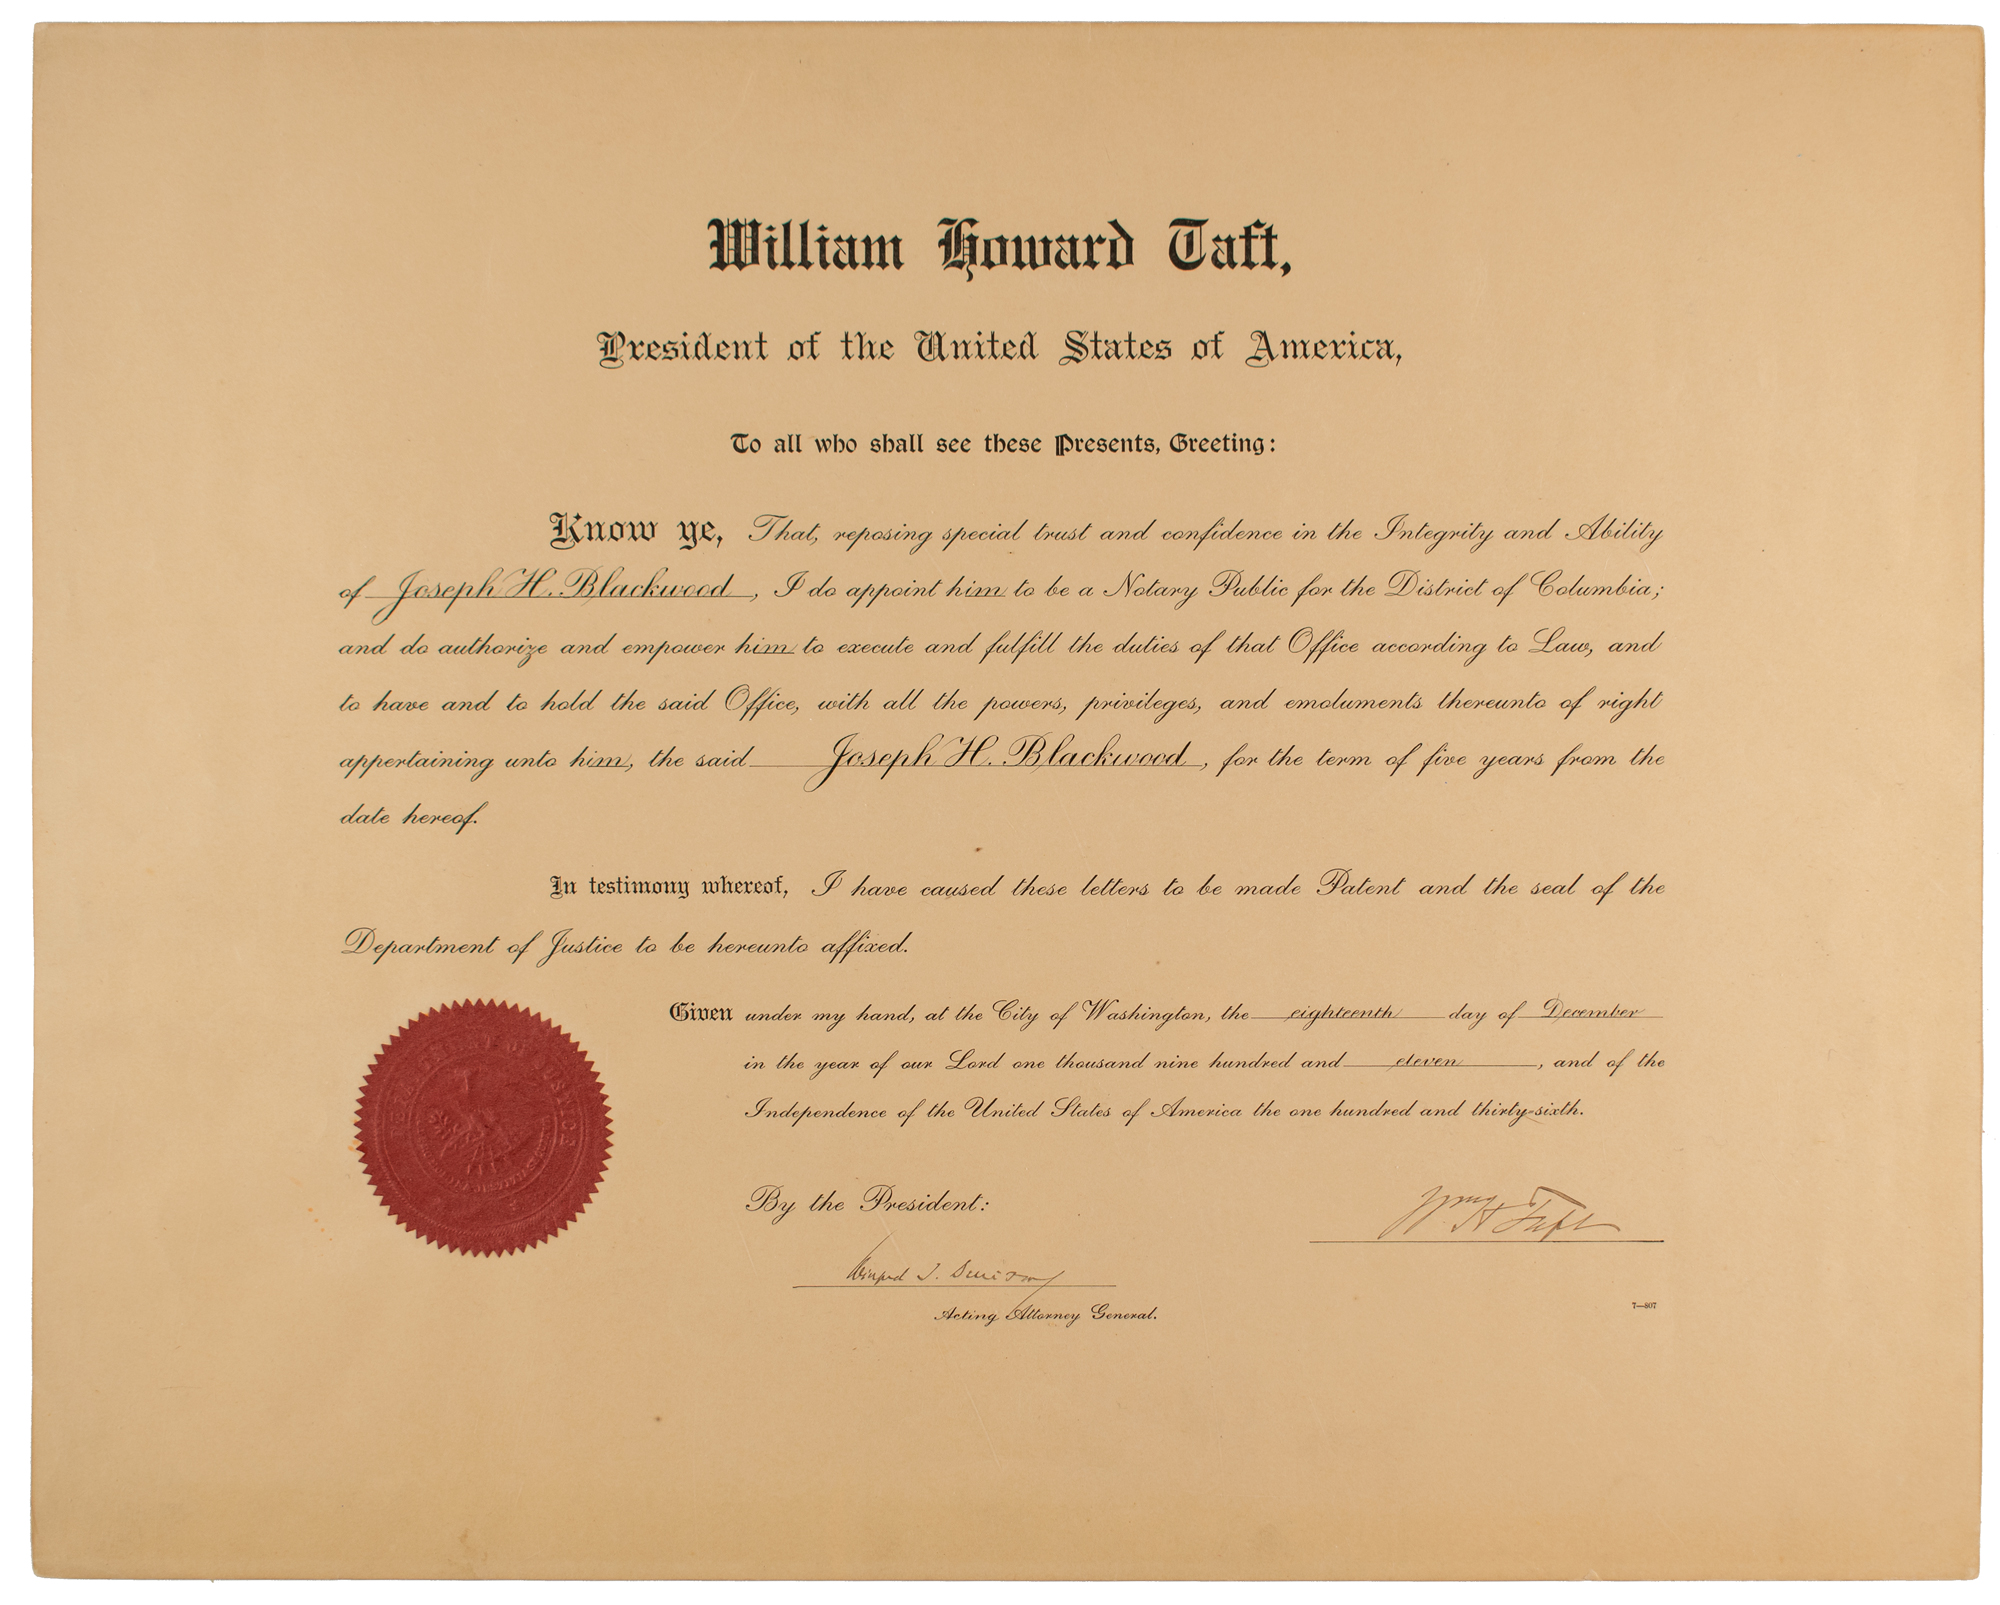 William Howard Taft,
President of the United States of America,
To all who shall see these Presents, Greeting:
Know ye, That, reposing special trust and confidence in the Integrity and Ability
of Joseph H. Blackwood, I do appoint him to be a Notary Public for the District of Columbia;
and do authorize and empower him to execute and fulfill the duties of that Office according to Law, and
to have and to hold the said Office, with all the powers, privileges, and emoluments thereunto of right
appertaining unto him, the said Joseph H. Blackwood, for the term of five years from the
date hereof.
In testimony whereof, I have caused these letters to be made Patent and the seal of the
Department of Justice to be hereunto affixed.
Given under my hand, at the City of Washington, the eighteenth day of December
in the year of our Lord one thousand nine hundred and eleven, and of the
Independence of the United States of America the one hundred and thirty-sixth.
DEPARTMENT OF JUSTICE
By the President:
Wm H Taft
Acting Attorney General.
7—807